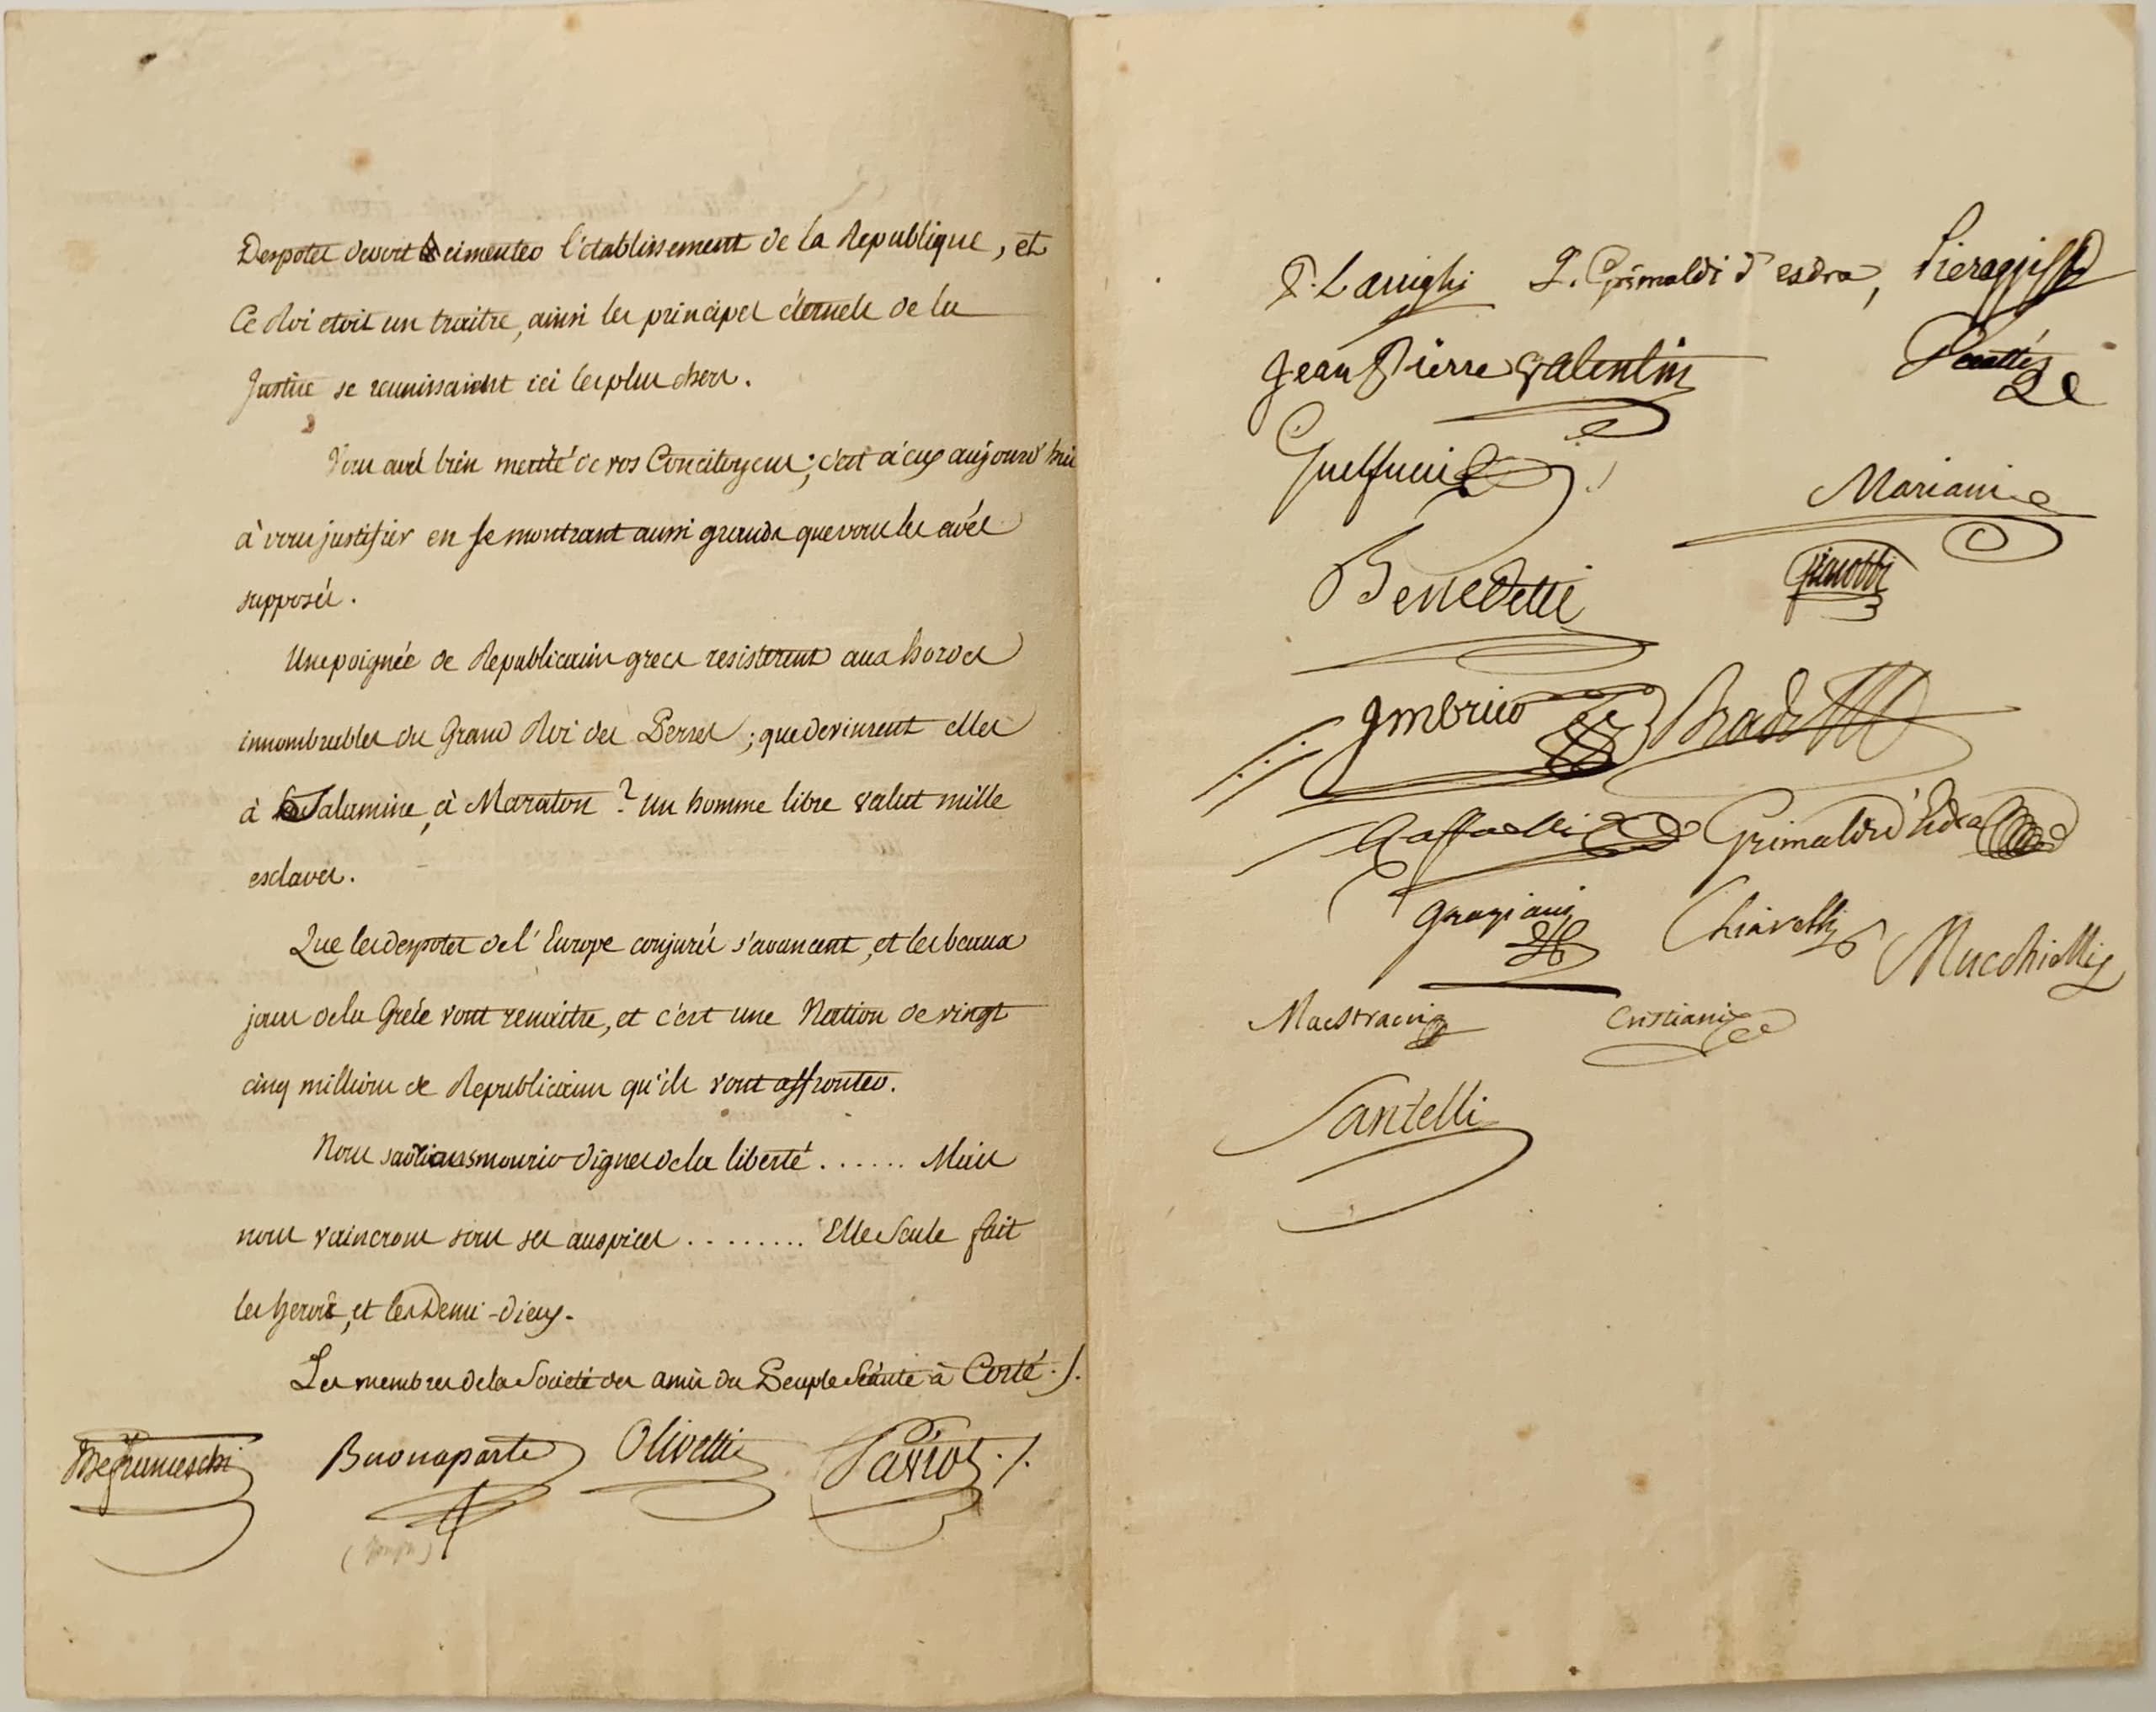 Despotes devoit cimenter l'établissement de la Republique, et
Ce Roi etoit un traitre, ainsi les principes éternels de la
Justice se reunissaient ici les plus chers.
Vous avés bien merité de vos Concitoyens; c'est à eux aujourd'hui
à vous justifier en se montrant aussi grands que vous les avés
supposés.
Une poignée de Republicains grecs resisterent aux hordes
innombrables du Grand Roi des Perses; que devinrent elles
à Salamine, à Maraton? un homme libre valut mille
esclaves.
Que les despotes de l'Europe conjurés s'avancent, et les beaux
jours de la Gréce vont renaitre, et c'est une Nation de vingt
cinq millions de Republicains qu'ils vont affronter.
Nous saurions mourir dignes de la liberté ....... Mais
nous vaincrons sous ses auspices ........ Elle Seule fait
les heros, et les Demi-dieux.
Les membres de la Société des amis du Peuple Séante à Corté ./.
Buonaparte Olivetti
(Joseph)
P. Larrighi J. Grimaldi d'esdra,
Jean Pierre Valentini
Guelfucci
Mariani
Benedetti Giacobbi
Imbrico
Raffaelli Grimaldi d'Esdra
Graziani Chiarelli Mucchielli
Mastracci Cristiani
Santelli